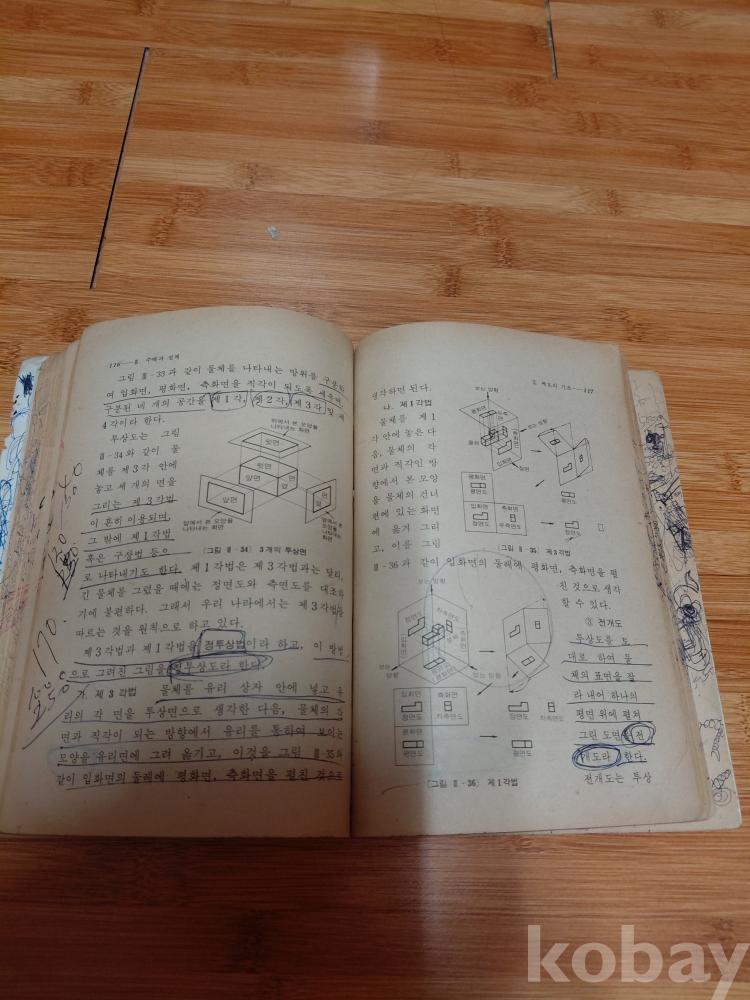 116—Ⅱ
그림 Ⅱ-33과 같이 물체를 나타내는 방위를 구상하
여 입화면, 평화면, 측화면을 직각이 되도록 세우면
구분된 네 개의 공간를 제1각, 제2각, 제3각 및 제
4각이라 한다.
투상도는 그림
Ⅱ-34와 같이 물
체를 제3각 안에
놓고 세 개의 면을
그리는 제3각법
이 흔히 이용되며,
그 밖에 제1각법
혹은 구상법 등으
로 나타내기도 한다. 제1각법은 제3각법과는 달리,
긴 물체를 그렸을 때에는 정면도와 측면도를 대조하
기에 불편하다. 그래서 우리 나라에서는 제3각법을
따르는 것을 원칙으로 하고 있다.
제3각법과 제1각법을 정투상법이라 하고, 이 방법
으로 그려진 그림을 정투상도라 한다.
가 제3각법 물체를 유리 상자 안에 넣고 유
리의 각 면을 투상면으로 생각한 다음, 물체의 각
면과 직각이 되는 방향에서 유리를 통하여 보이는
모양을 유리면에 그려 옮기고, 이것을 그림 Ⅱ-35와
같이 입화면의 둘레에 평화면, 측화면을 펼친 것으로
위에서 본 모양을
나타내는 화면
윗면
윗면
앞면
앞면
옆면
옆면
앞에서 본 모양을
나타내는 화면
[그림 Ⅱ-34] 3개의 투상면
170.
117
생각하면 된다.
나. 제1각법
물체를 제1
각 안에 놓은 다
음, 물체의 각
면과 직각인 방
향에서 본 모양
을 물체의 건너
편에 있는 화면
에 옮겨 그리
고, 이를 그림
Ⅱ-36과 같이 입화면의 둘레에 평화면, 측화면을 펼
친 것으로 생각
할 수 있다.
③ 전개도
투상도를 토
대로 하여 물
체의 표면을 잘
라 내어 하나의
평면 위에 펼쳐
그린 도면을 전
개도라 한다.
전개도는 투상
보는 방향
평화면
측화면
입화면
보는 방향
평화면
평면도
입화면
정면도
측화면
우측면도
평면도
정면도
우측면도
[그림 Ⅱ·35] 제3각법
보는 방향
정면도
좌측면도
입화면
측화면
보는 방향
보는 방향
입화면
정면도
측화면
좌측면도
평화면
평면도
정면도
좌측면도
평면도
[그림 Ⅱ·36] 제1각법
kobay